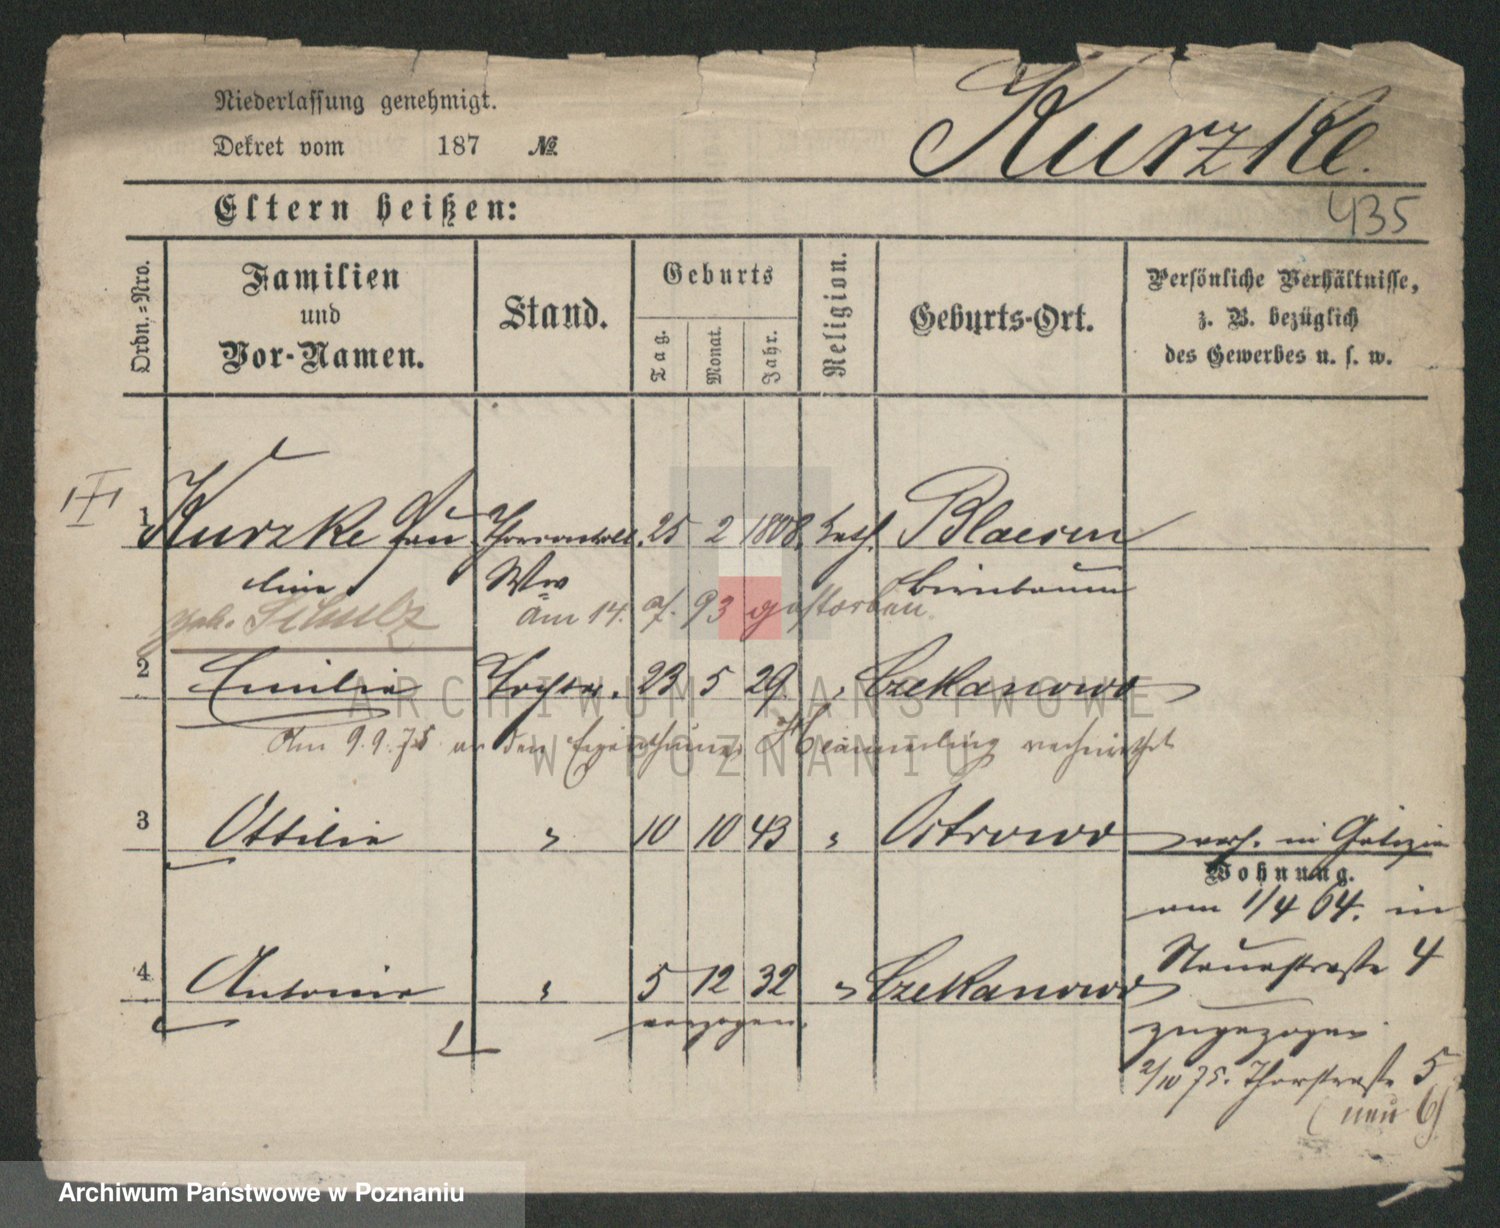 Niederlassung genehmigt.
Dekret vom 187 №
Kurzke.
Eltern heißen:
435
Ordn.-Nro.
Familien
und
Vor-Namen.
Stand.
Geburts
Tag.
Monat.
Jahr.
Religion.
Geburts-Ort.
Persönliche Verhältnisse,
z. B. bezüglich
des Gewerbes u. s. w.
III
1 Kurzke Pau 25 2 1808. kath.
line Ww Birnbaum
geb. Schulz am 14. 93 gestorben.
2 Emilie Tochter. 23 5 29. " Czekanowo
Am 9.9.75 an den Hämmerling verheirathet
3 Ottilie " 10 10 43 " Ostrowo verh. in Galizien
Wohnung.
am 1/4 64. in
Neuestraße 4
4 Antonie " 5 12 32 " Czekanowo
verzogen.
zugezogen
2/10 75. Thorstraße 5
(neu 6)
ARCHIWUM PAŃSTWOWE
W POZNANIU
Archiwum Państwowe w Poznaniu